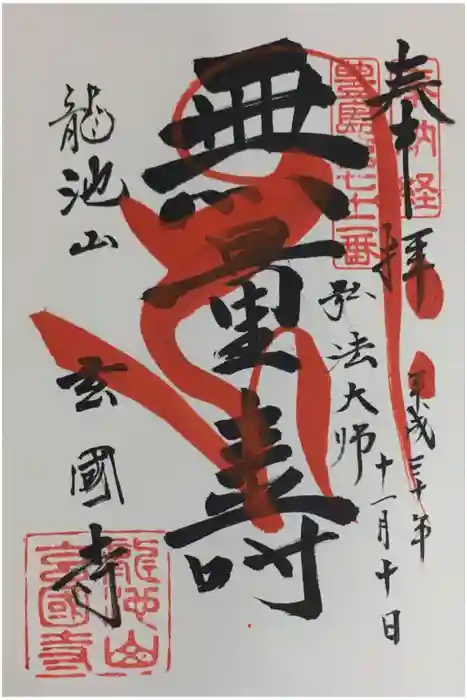 奉拝
奉納経
豊島第七十二番
平成三十年
十一月十日
弘法大師
無量壽
龍池山
玄國寺
龍池山
玄國寺